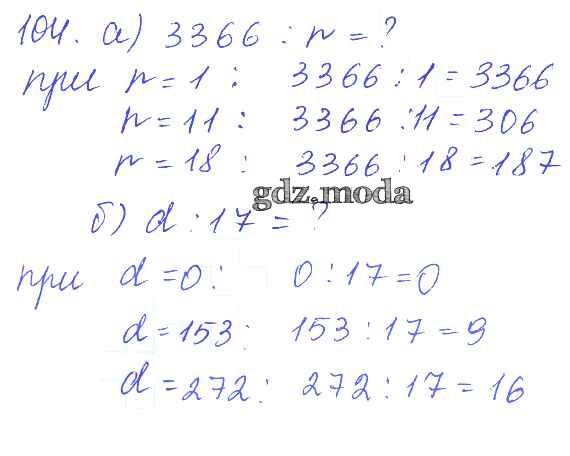 104. а) 3366 : n = ?
при n = 1 : 3366 : 1 = 3366
n = 11 : 3366 : 11 = 306
n = 18 : 3366 : 18 = 187
gdz.moda
б) d : 17 = ?
при d = 0 : 0 : 17 = 0
d = 153 : 153 : 17 = 9
d = 272 : 272 : 17 = 16